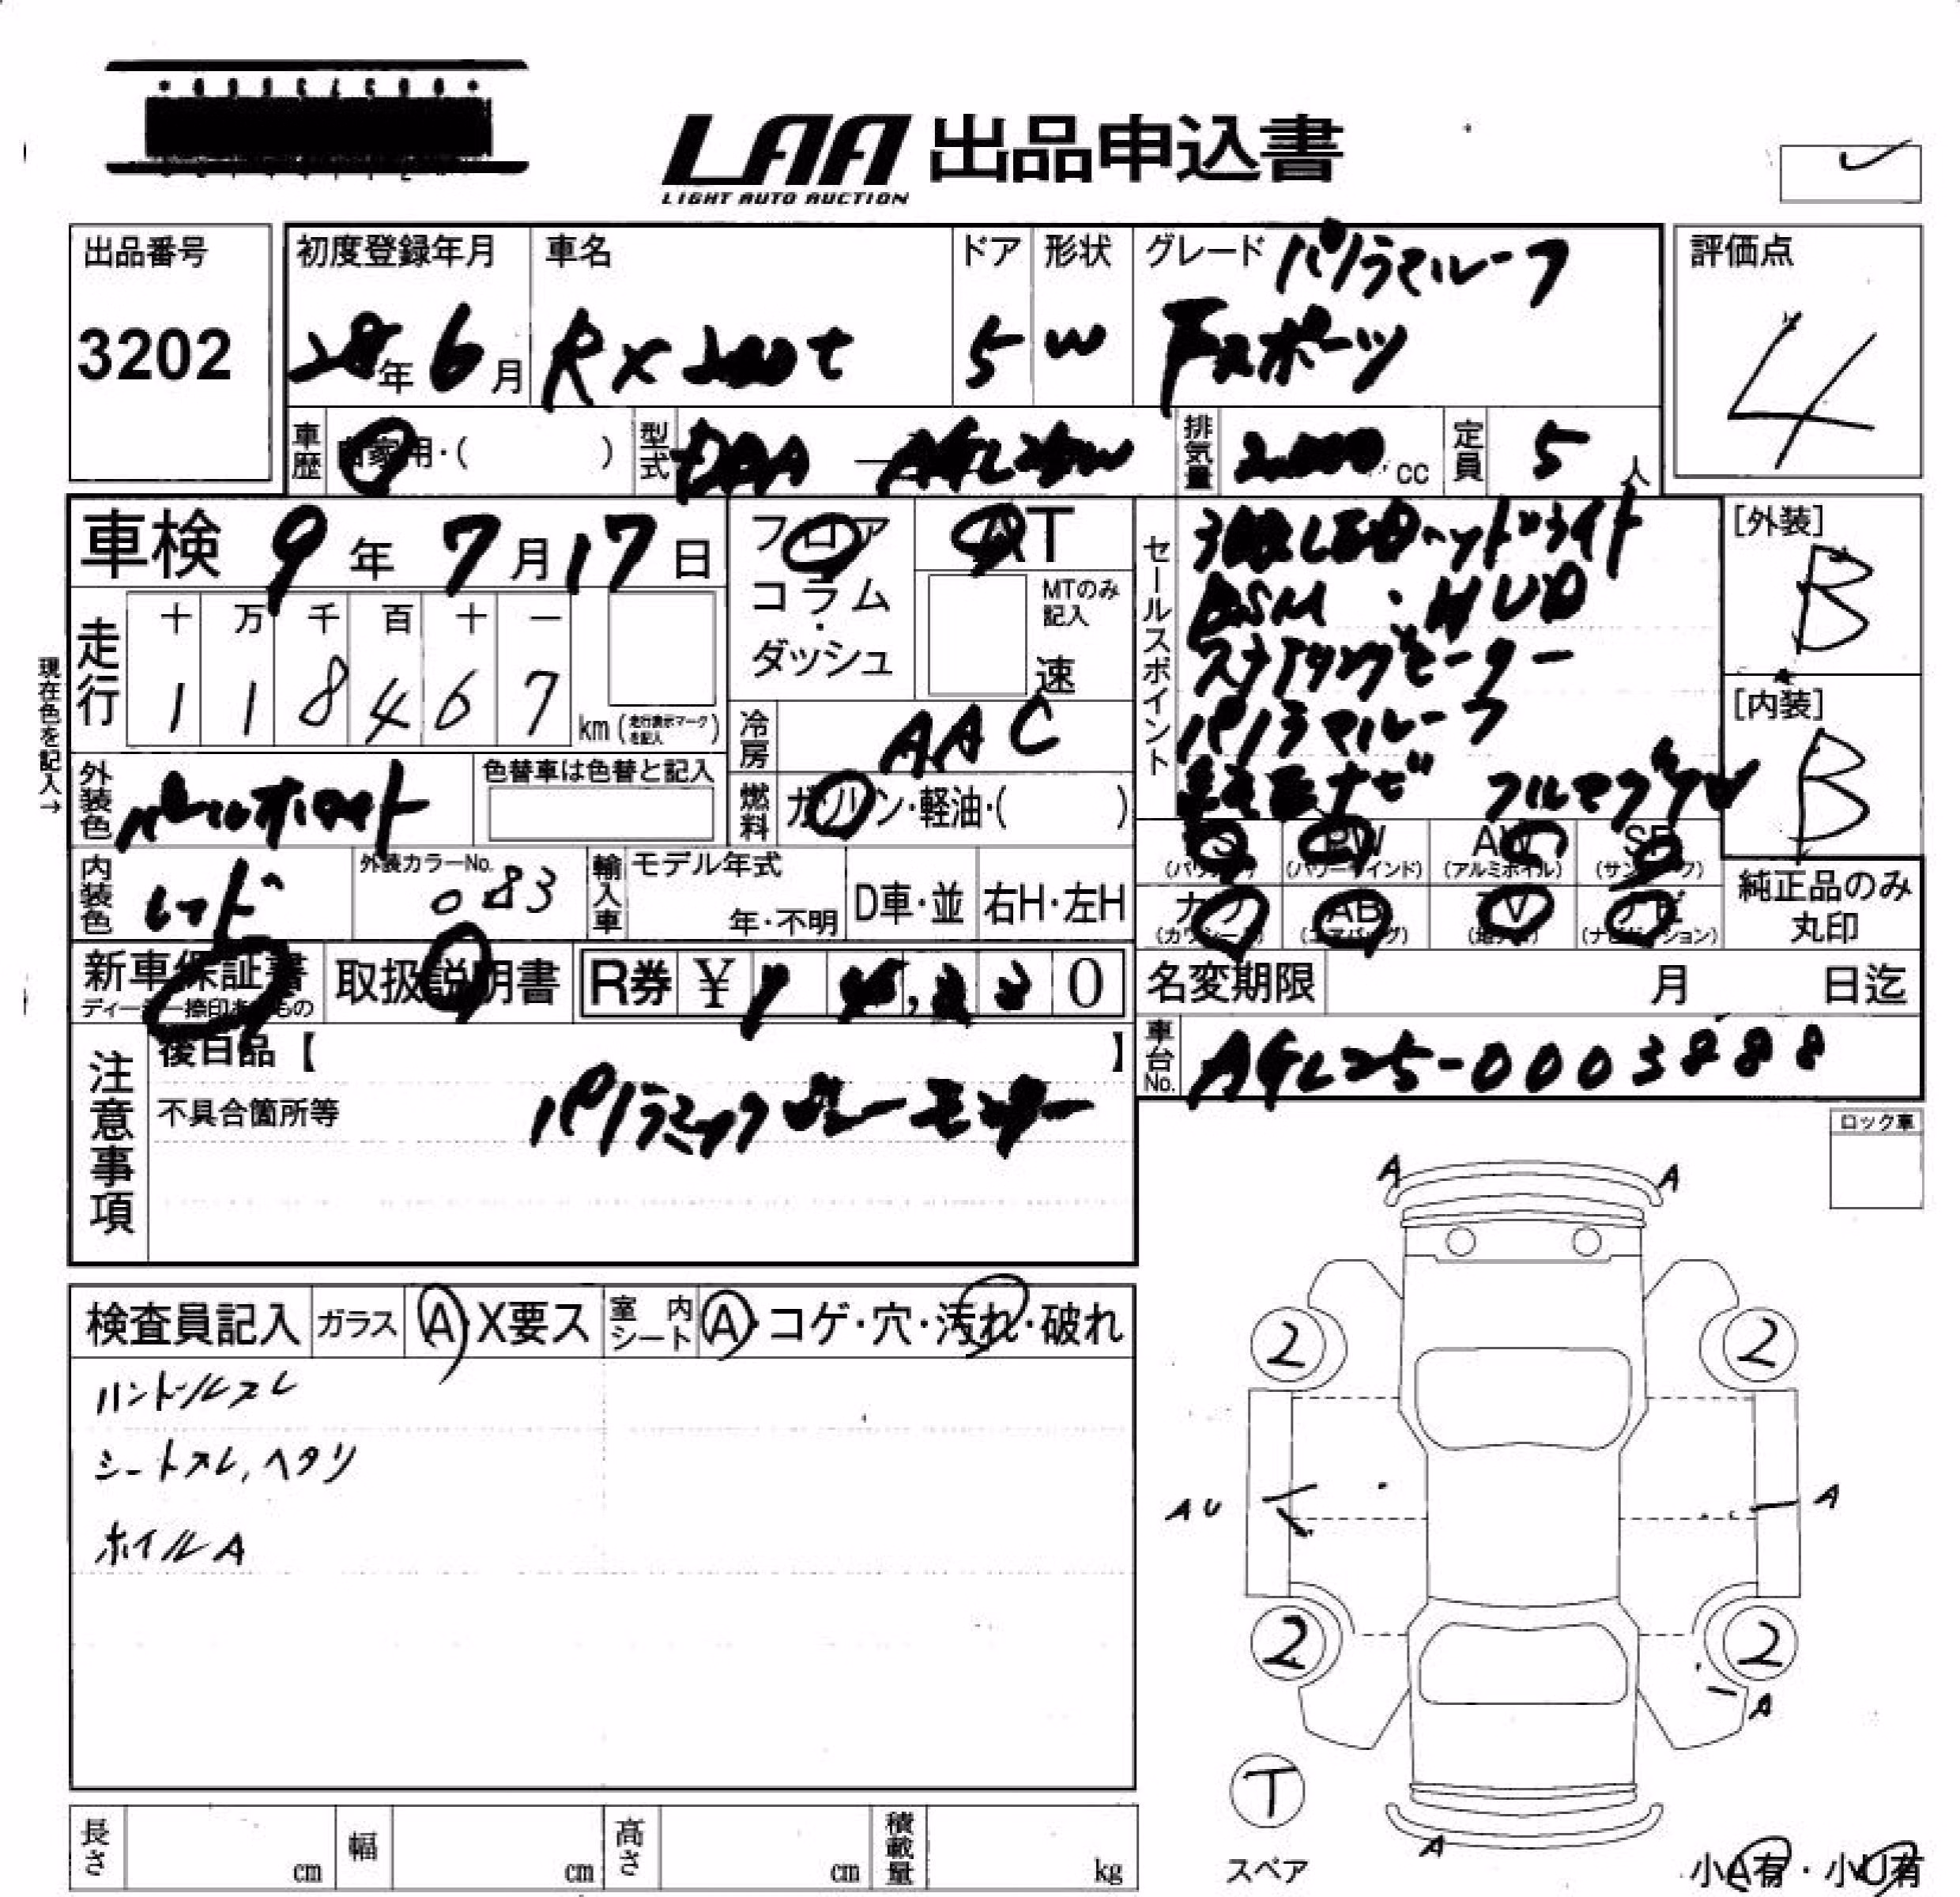 LAA 出品申込書
LIGHT AUTO AUCTION
出品番号
3202
初度登録年月
28年6月
車名
RX200t
ドア
5
形状
W
グレード パノラマルーフ
Fスポーツ
評価点
4
車歴 自家用・( )
型式 DAA
排気量 2000 cc
定員 5 人
車検 9年7月17日
フロア
コラム
・
ダッシュ
AT
MTのみ
記入
速
走行
十 万 千 百 十 一
1 1 8 4 6 7 km (走行表示マークを記入)
現在色を記入→
冷房 AAC
燃料 ガソリン・軽油・( )
外装色 パールホワイト
色替車は色替と記入
内装色 レッド
外装カラーNo. 083
輸入車
モデル年式
年・不明
D車・並
右H・左H
セールスポイント
3眼LEDヘッドライト
BSM・HUD
ステアリングヒーター
パノラマルーフ
純正ナビ フルセグTV
[外装]
B
[内装]
B
PS PW AW SR
(パワステ) (パワーウインド) (アルミホイル) (サンルーフ)
カワ AB TV ナビ
(カワシート) (エアバッグ) (地デジ) (ナビゲーション)
純正品のみ
丸印
新車保証書
ディーラー捺印あるもの
取扱説明書
R券 ¥ 0
名変期限 月 日迄
車台No. AGL25-0003888
注意事項
後日品【 】
不具合箇所等
パノラミックビューモニター
ロック車
検査員記入
ガラス A・X要ス
室内シート A・コゲ・穴・汚れ・破れ
ハンドルスレ
シートスレ,ヘタリ
ホイルA
A A
2 2
AU A
2 2
A
T
スペア
A
小A有・小U有
長さ cm
幅 cm
高さ cm
積載量 kg